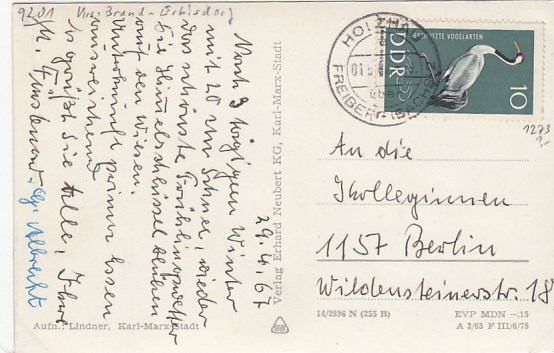 9201 Krs. Brand-Erbisdorf
29.4.67
Nach 3 tägigem Winter
mit 20 cm Schnee, wieder
das schönste Frühlingswetter
Die Himmelschlüssel blühen
auf den Wiesen.
Unterkunft prima Essen
ausreichend
so grüßt Sie Alle, Ihre
M.
u. Chr. Albrecht
Aufn.: Lindner, Karl-Marx-Stadt
Verlag Erhard Neubert KG, Karl-Marx-Stadt
HOLZHAU
FREIBERG (SACHS)
01
GESCHÜTZTE VOGELARTEN
DDR
10
1273
1,-
An die
Kolleginnen
1157 Berlin
Wildensteinerstr. 18
14/2896 N (255 B)
EVP MDN -,15
A 3/65 F III/6/75